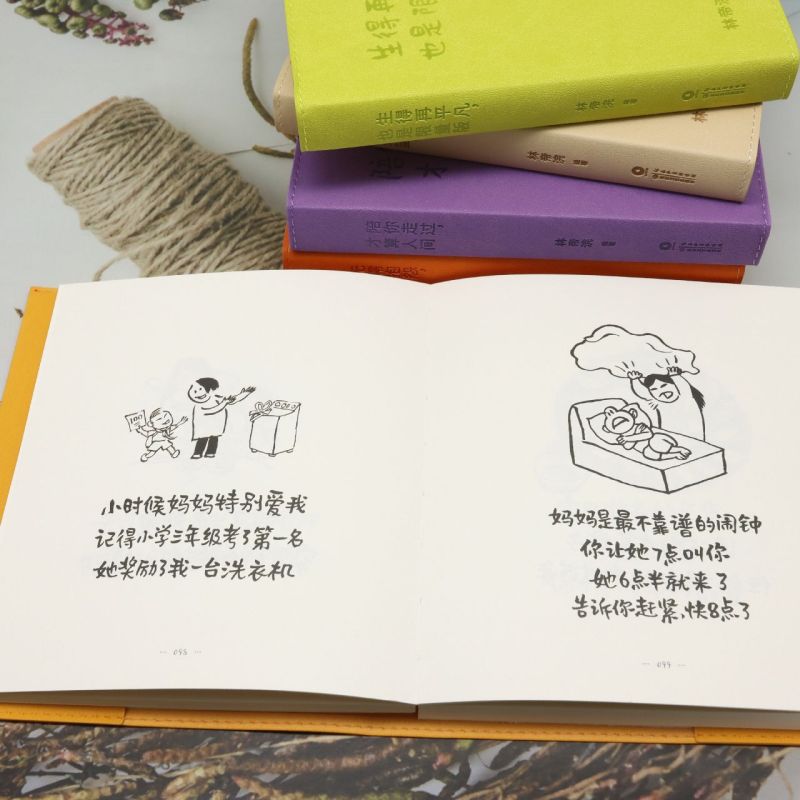 生得再
也是限
生得再平凡，
也是限量版
林帝浣 著
林帝浣
林帝浣 著
陪你走过，
才算人间
林帝浣 著
100
小时候妈妈特别爱我
记得小学三年级考了第一名
她奖励了我一台洗衣机
妈妈是最不靠谱的闹钟
你让她7点叫你
她6点半就来了
告诉你赶紧,快8点了